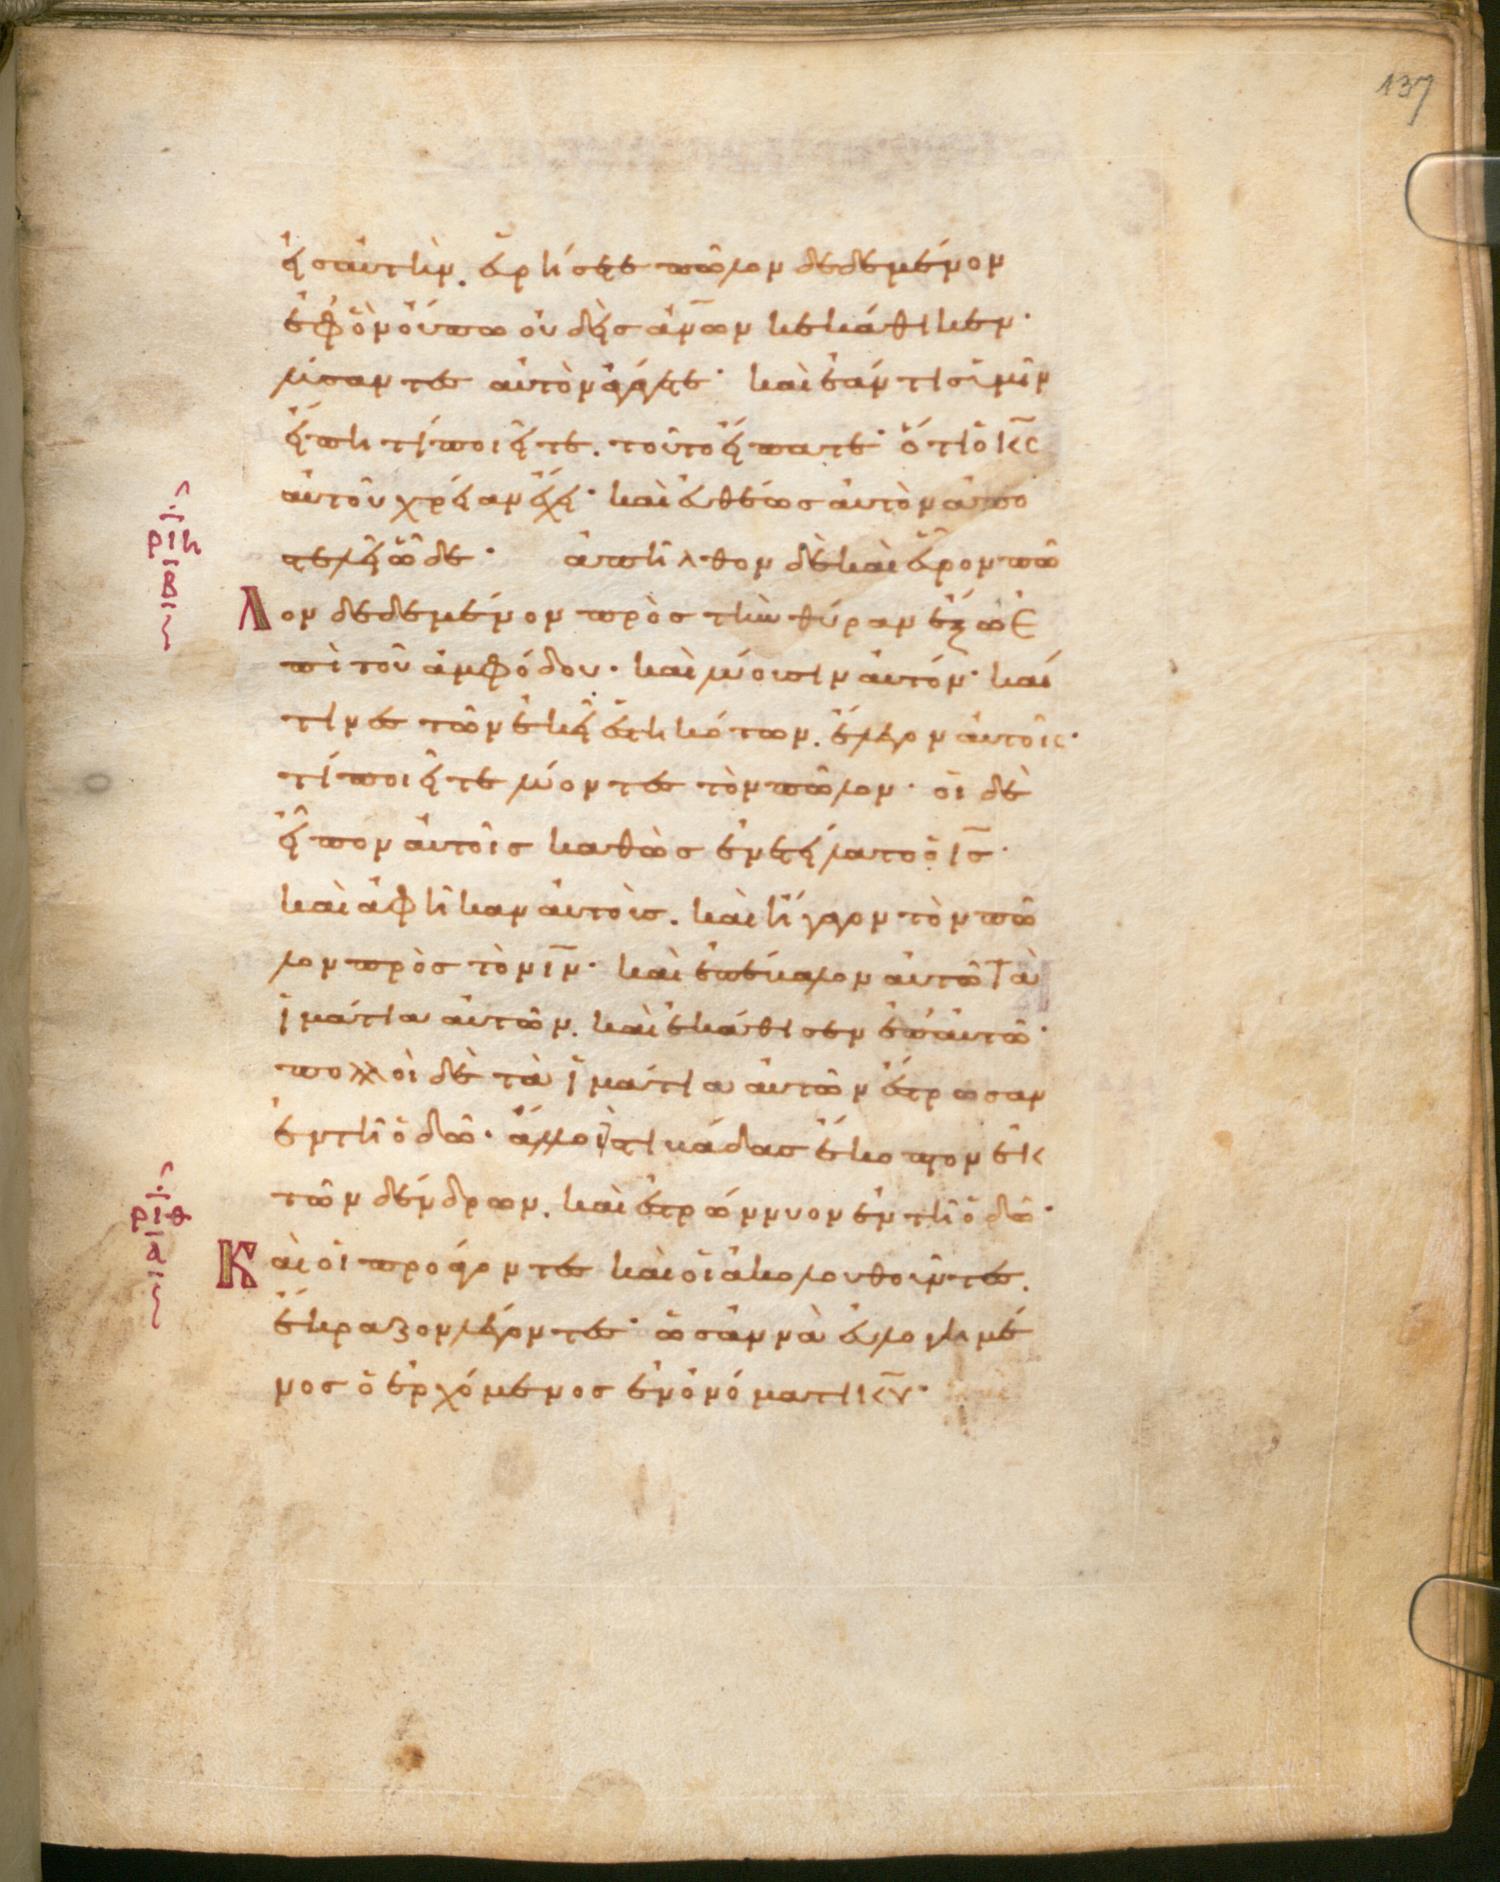 137
εἰς αὐτὴν. εὑρήσετε πῶλον δεδεμένον
ἐφ ὃν οὔπω οὐδεὶς ἀν̅ων κεκάθικεν·
λύσαντες αὐτὸν ἀγάγετε· καὶ ἐάν τις ὑμῖν
εἴπη τί ποιεῖτε. τοῦτο εἴπατε· ὅτι ὁ κ̅ς
αὐτοῦ χρείαν ἔχει· καὶ εὐθέως αὐτὸν ἀπο
στελεῖ ὧδε· ἀπῆλθον δὲ καὶ εὗρον πῶ
ριη
β
Λον δεδεμένον πρὸς τὴν θύραν ἔξω ἐ
πὶ τοῦ ἀμφόδου· καὶ λύουσιν αὐτόν· καί
τινες τῶν ἐκεῖ ἑστηκότων. ἔλεγον αὐτοῖς·
τί ποιεῖτε λύοντες τὸν πῶλον· οἱ δὲ
εἶπον αὐτοῖς καθὼς ἐνετείλατο ὁ ι̅ς·
καὶ ἀφῆκαν αὐτοὺς. καὶ ἤγαγον τὸν πῶ
λον πρὸς τὸν ι̅ν· καὶ ἐπέβαλον αὐτῶ τὰ
ἱμάτια αὐτῶν. καὶ ἐκάθισεν ἐπ αὐτῶ·
πολλοὶ δὲ τὰ ἱμάτια αὐτῶν ἔστρωσαν
ἐν τῆ ὁδῶ· ἄλλοι στιβάδας ἔκοπτον ἐκ
τῶν δένδρων. καὶ ἐστρώννυον ἐν τῆ ὁδῶ·
ριθ
α
Καὶ οἱ προάγοντες καὶ οἱ ἀκολουθοῦντες.
ἔκραζον λέγοντες· ὡσαννὰ εὐλογημέ
νος ὁ ἐρχόμενος ἐν ὀνόματι κ̅υ·